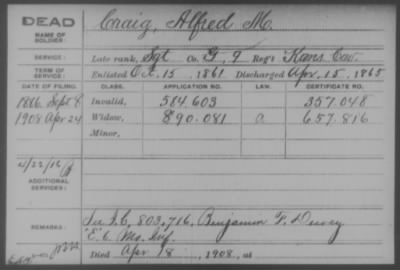 DEAD
NAME OF SOLDIER: Craig, Alfred M.
SERVICE: Late rank, Sgt Co. G, 9 Reg't Kans Cav.
TERM OF SERVICE: Enlisted Oct. 15, 1861 Discharged Apr. 15, 1865
DATE OF FILING. CLASS. APPLICATION NO. LAW. CERTIFICATE NO.
1886 Sept 8 Invalid, 584.603 357.048
1908 Apr 24 Widow, 890.081 a 657.816
Minor,
4/22/16
ADDITIONAL SERVICES:
REMARKS: See I.C. 803,716, Benjamin F. Dewey
"E" 6 Mo. Inf.
Died Apr 18, 1908, at